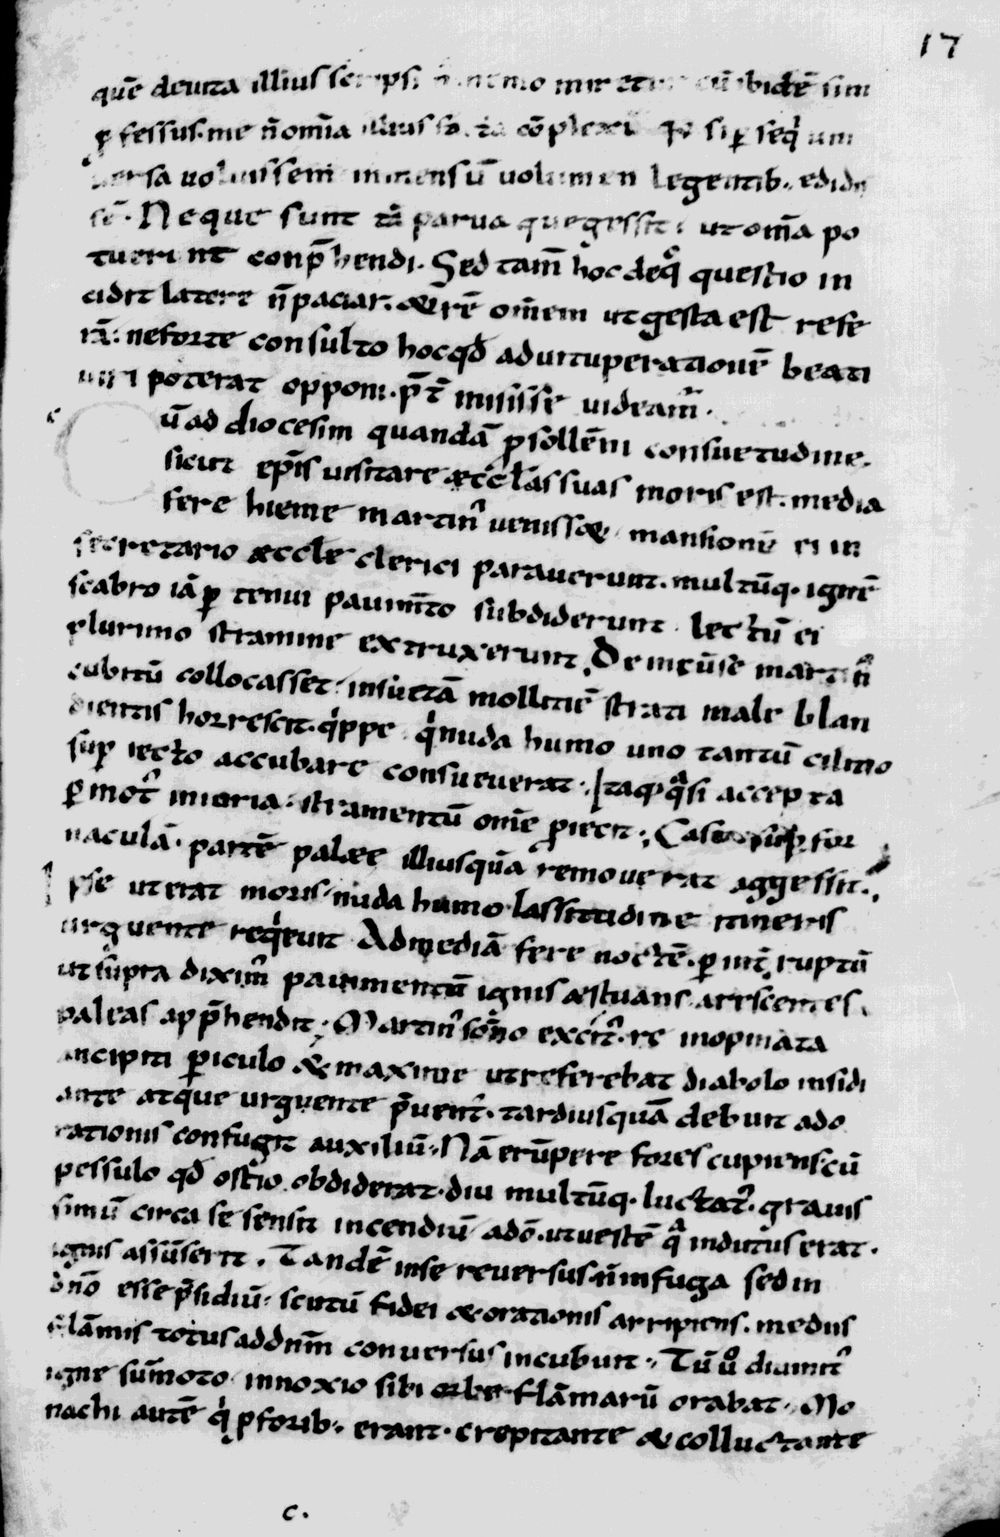 17
quē de uita illius scripsi n̄ nemo miretur cū ibidē sim
ꝓfessus. me n̄ om̄ia illius cōplexū qꝫ si ꝑseqi uni
uersa uoluissem inmensū uolumen legentib. edidis
sē. Neque sunt tā parua que gessit ut om̄ia po
tuerint conp̄hendi. Sed tam̄ hoc de qͦ questio in
cidit latere n̄ paciar. & rē om̄em ut gesta est refe
rā. ne forte consulto hoc qd̄ ad uituperationē beati
uiri poterat opponi. p̄t̄misisse uideamᷣ.
c
ū ad diocesim quandā ꝓ sollēni consuetudine.
sicut ep̄is uisitare æccl̄as suas moris est. media
fere hieme martinᷣ ueniss& mansionē ei in
secretario æccl̄e clerici parauerunt. multūq. ignē
scabro iā ꝑ tenui pauim̄to subdiderunt lectū ei
plurimo stramine extruxerunt. Deinc ū se martinᷣ
cubitū collocasset. insuetā mollitiē strati male blan
dientis horrescit. qippe qi nuda humo uno tantū cilitio
sup̄ iecto accubare consueuerat. Itaq qasi accepta
ꝑmotᷣ iniuria. stramentū om̄e ꝓiecit. Casu sup̄ for
naculā. partē paleæ illius quā remouerat aggessit.
Ipse ut erat moris nuda humo lassitudine itineris
urguente reqieuit Ad mediā fere noctē. ꝑ int̄ruptū
ut sup̄ra diximᷣ pauimentū ignis æstuans arescentes
paleas app̄hendit. Martinᷣ som̄no excitᷣ. re inopinata
ancipiti ꝑiculo & maxime ut referebat diabolo insidi
ante atque urguente p̄uentᷣ. tardius quā debuit ad o
rationis confugit auxiliū. Nā erūpere fores cupiens cū
pessulo qd̄ ostio obdiderat. diu multūq. luctatᷣ. grauis
simū circa se sensit incendiū adō. ut uestē qa indutus erat.
ignis assūserit. Tandē in se reuersus. n̄ in fuga sed in
dn̄o esse p̄sidiū. scutū fidei & orationis arripiens. mediis
flāmis totus ad dn̄m conuersus incubuit. Tū uͦ diuinitᷣ
igne sūmoto innoxio sibi orbe flāmarū orabat. Mo
nachi autē qi ꝓ forib. erant. crepitante & colluctante
c.